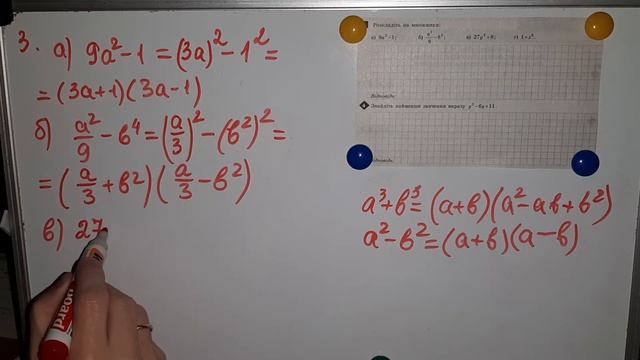 3. а) 9a² − 1 = (3a)² − 1² =
= (3a+1)(3a−1)
б) a²/9 − b⁴ = (a/3)² − (b²)² =
= (a/3 + b²)(a/3 − b²)
в) 27
Розкладіть на множники:
а) 9a² − 1; б) a²/9 − b⁴; в) 27y³ + 8; г) 1 + z⁶.
Відповідь:
4 Знайдіть найменше значення виразу y² − 6y + 11.
Відповідь:
a³+b³ = (a+b)(a² − ab + b²)
a² − b² = (a+b)(a−b)
board